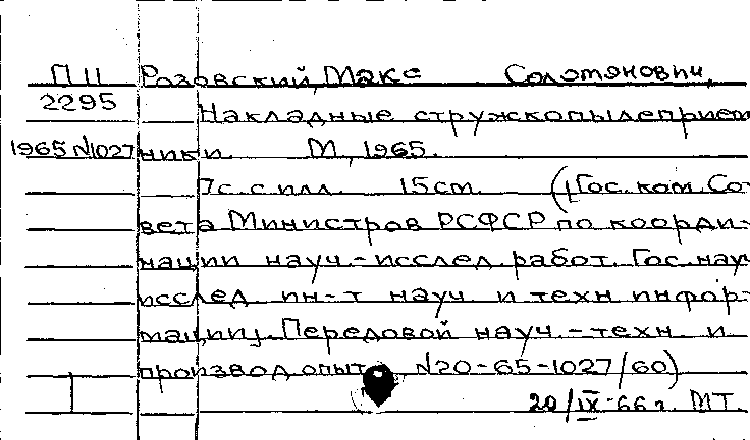 П 11 Розовский, Макс Соломонович,
2295 Накладные стружкопылеприем
1965 N1027 ники. М, 1965.
7с. с илл. 15см. ([Гос. ком. Со-
вета Министров РСФСР по коорди-
нации науч.-исслед. работ. Гос. науч
исслед ин-т науч и техн инфор-
мации]. Передовой науч.-техн и
производ опыт, N20-65-1027/60)
20/IX-66 г. МТ.